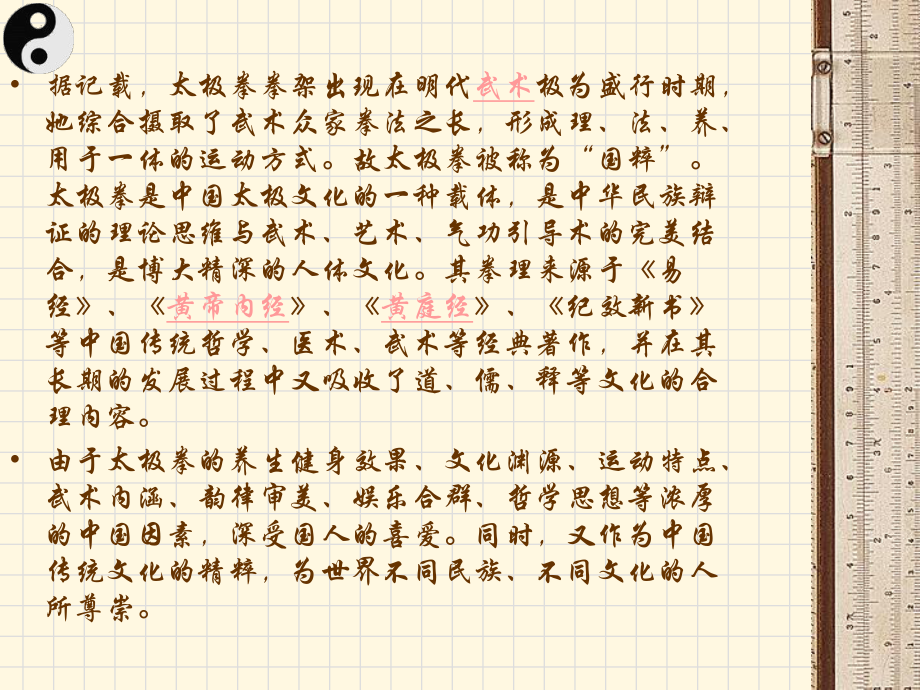 • 据记载，太极拳拳架出现在明代武术极为盛行时期，
她综合摄取了武术众家拳法之长，形成理、法、养、
用于一体的运动方式。故太极拳被称为“国粹”。
太极拳是中国太极文化的一种载体，是中华民族辩
证的理论思维与武术、艺术、气功引导术的完美结
合，是博大精深的人体文化。其拳理来源于《易
经》、《黄帝内经》、《黄庭经》、《纪效新书》
等中国传统哲学、医术、武术等经典著作，并在其
长期的发展过程中又吸收了道、儒、释等文化的合
理内容。
• 由于太极拳的养生健身效果、文化渊源、运动特点、
武术内涵、韵律审美、娱乐合群、哲学思想等浓厚
的中国因素，深受国人的喜爱。同时，又作为中国
传统文化的精粹，为世界不同民族、不同文化的人
所尊崇。